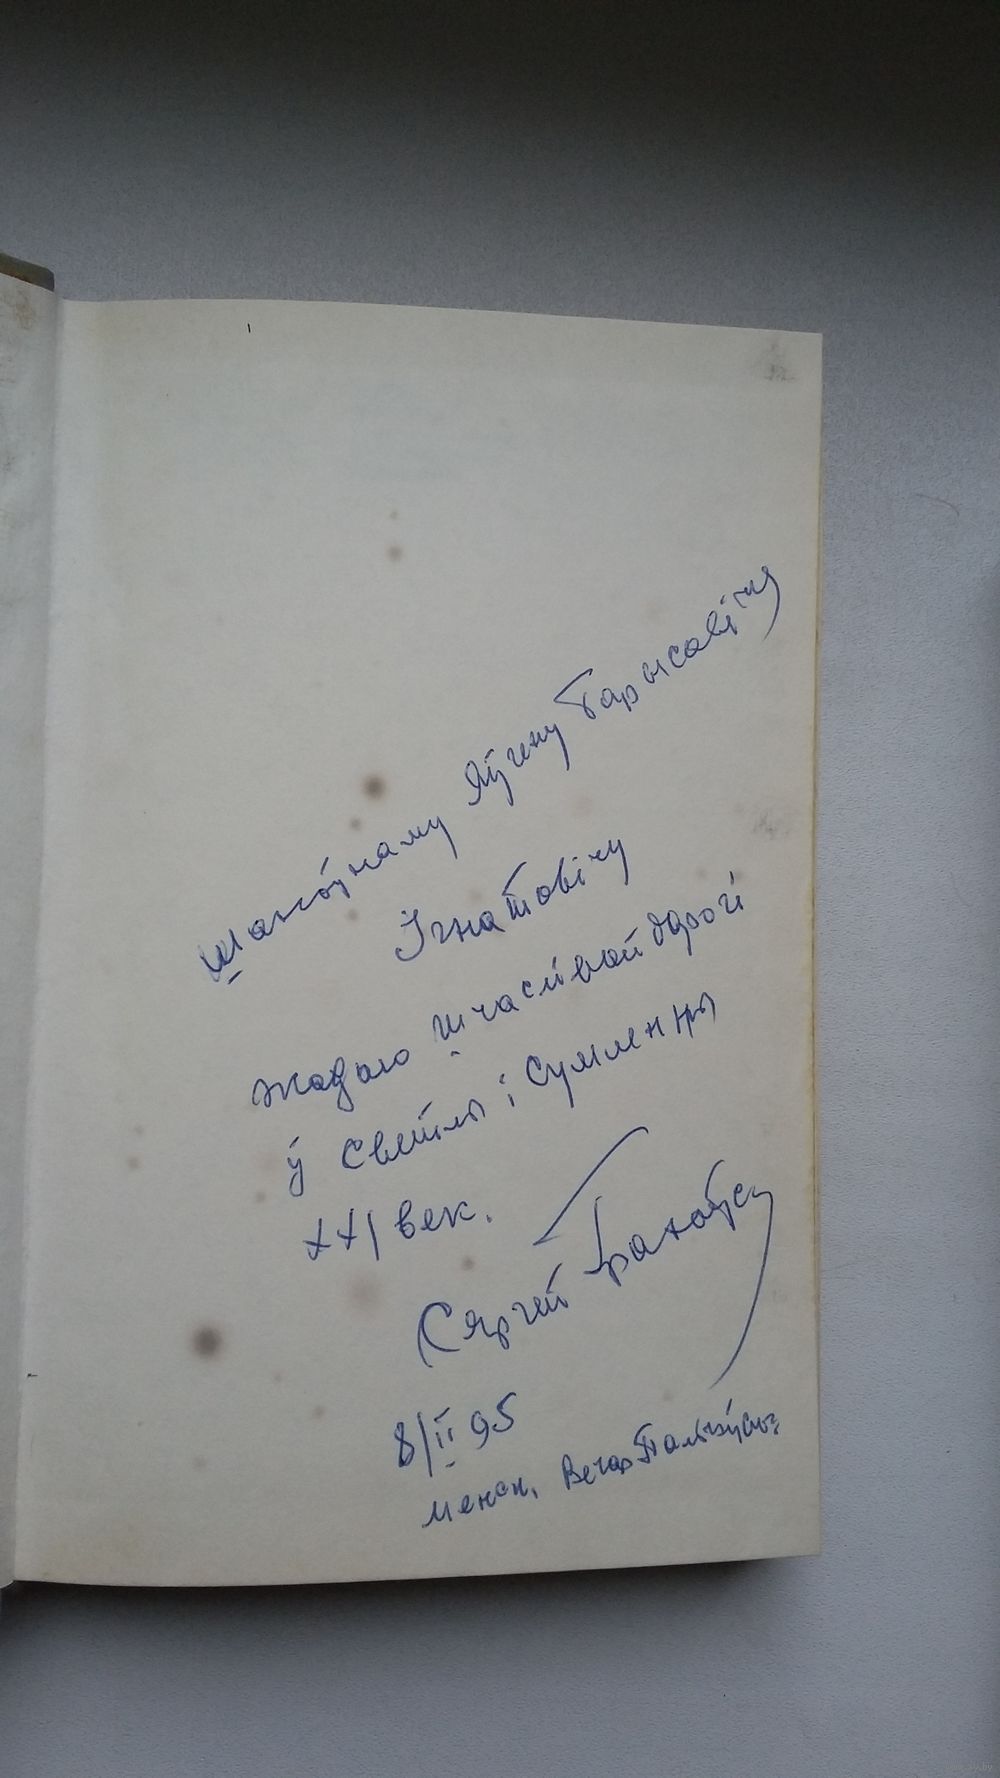 Шаноўнаму Яўгену Барысавічу
Ігнатовічу
жадаю шчаслівай дарогі
ў Светлы і Сумленны
XXI век.
Сяргей Грахоўскі
8/II 95
Менск, Вечар